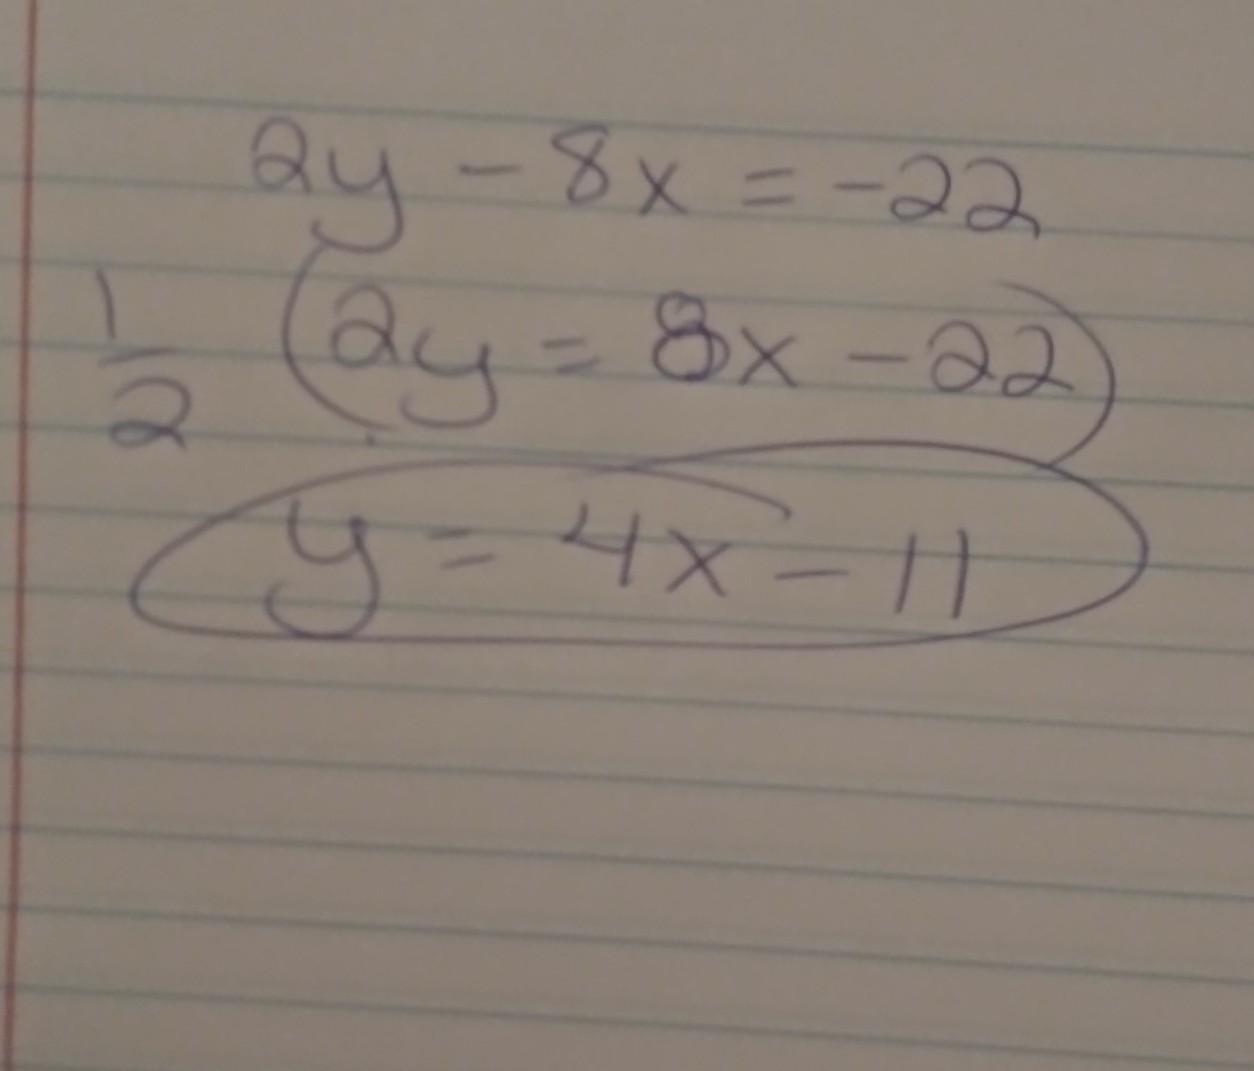 2y - 8x = -22
1/2 (2y = 8x - 22)
y = 4x - 11